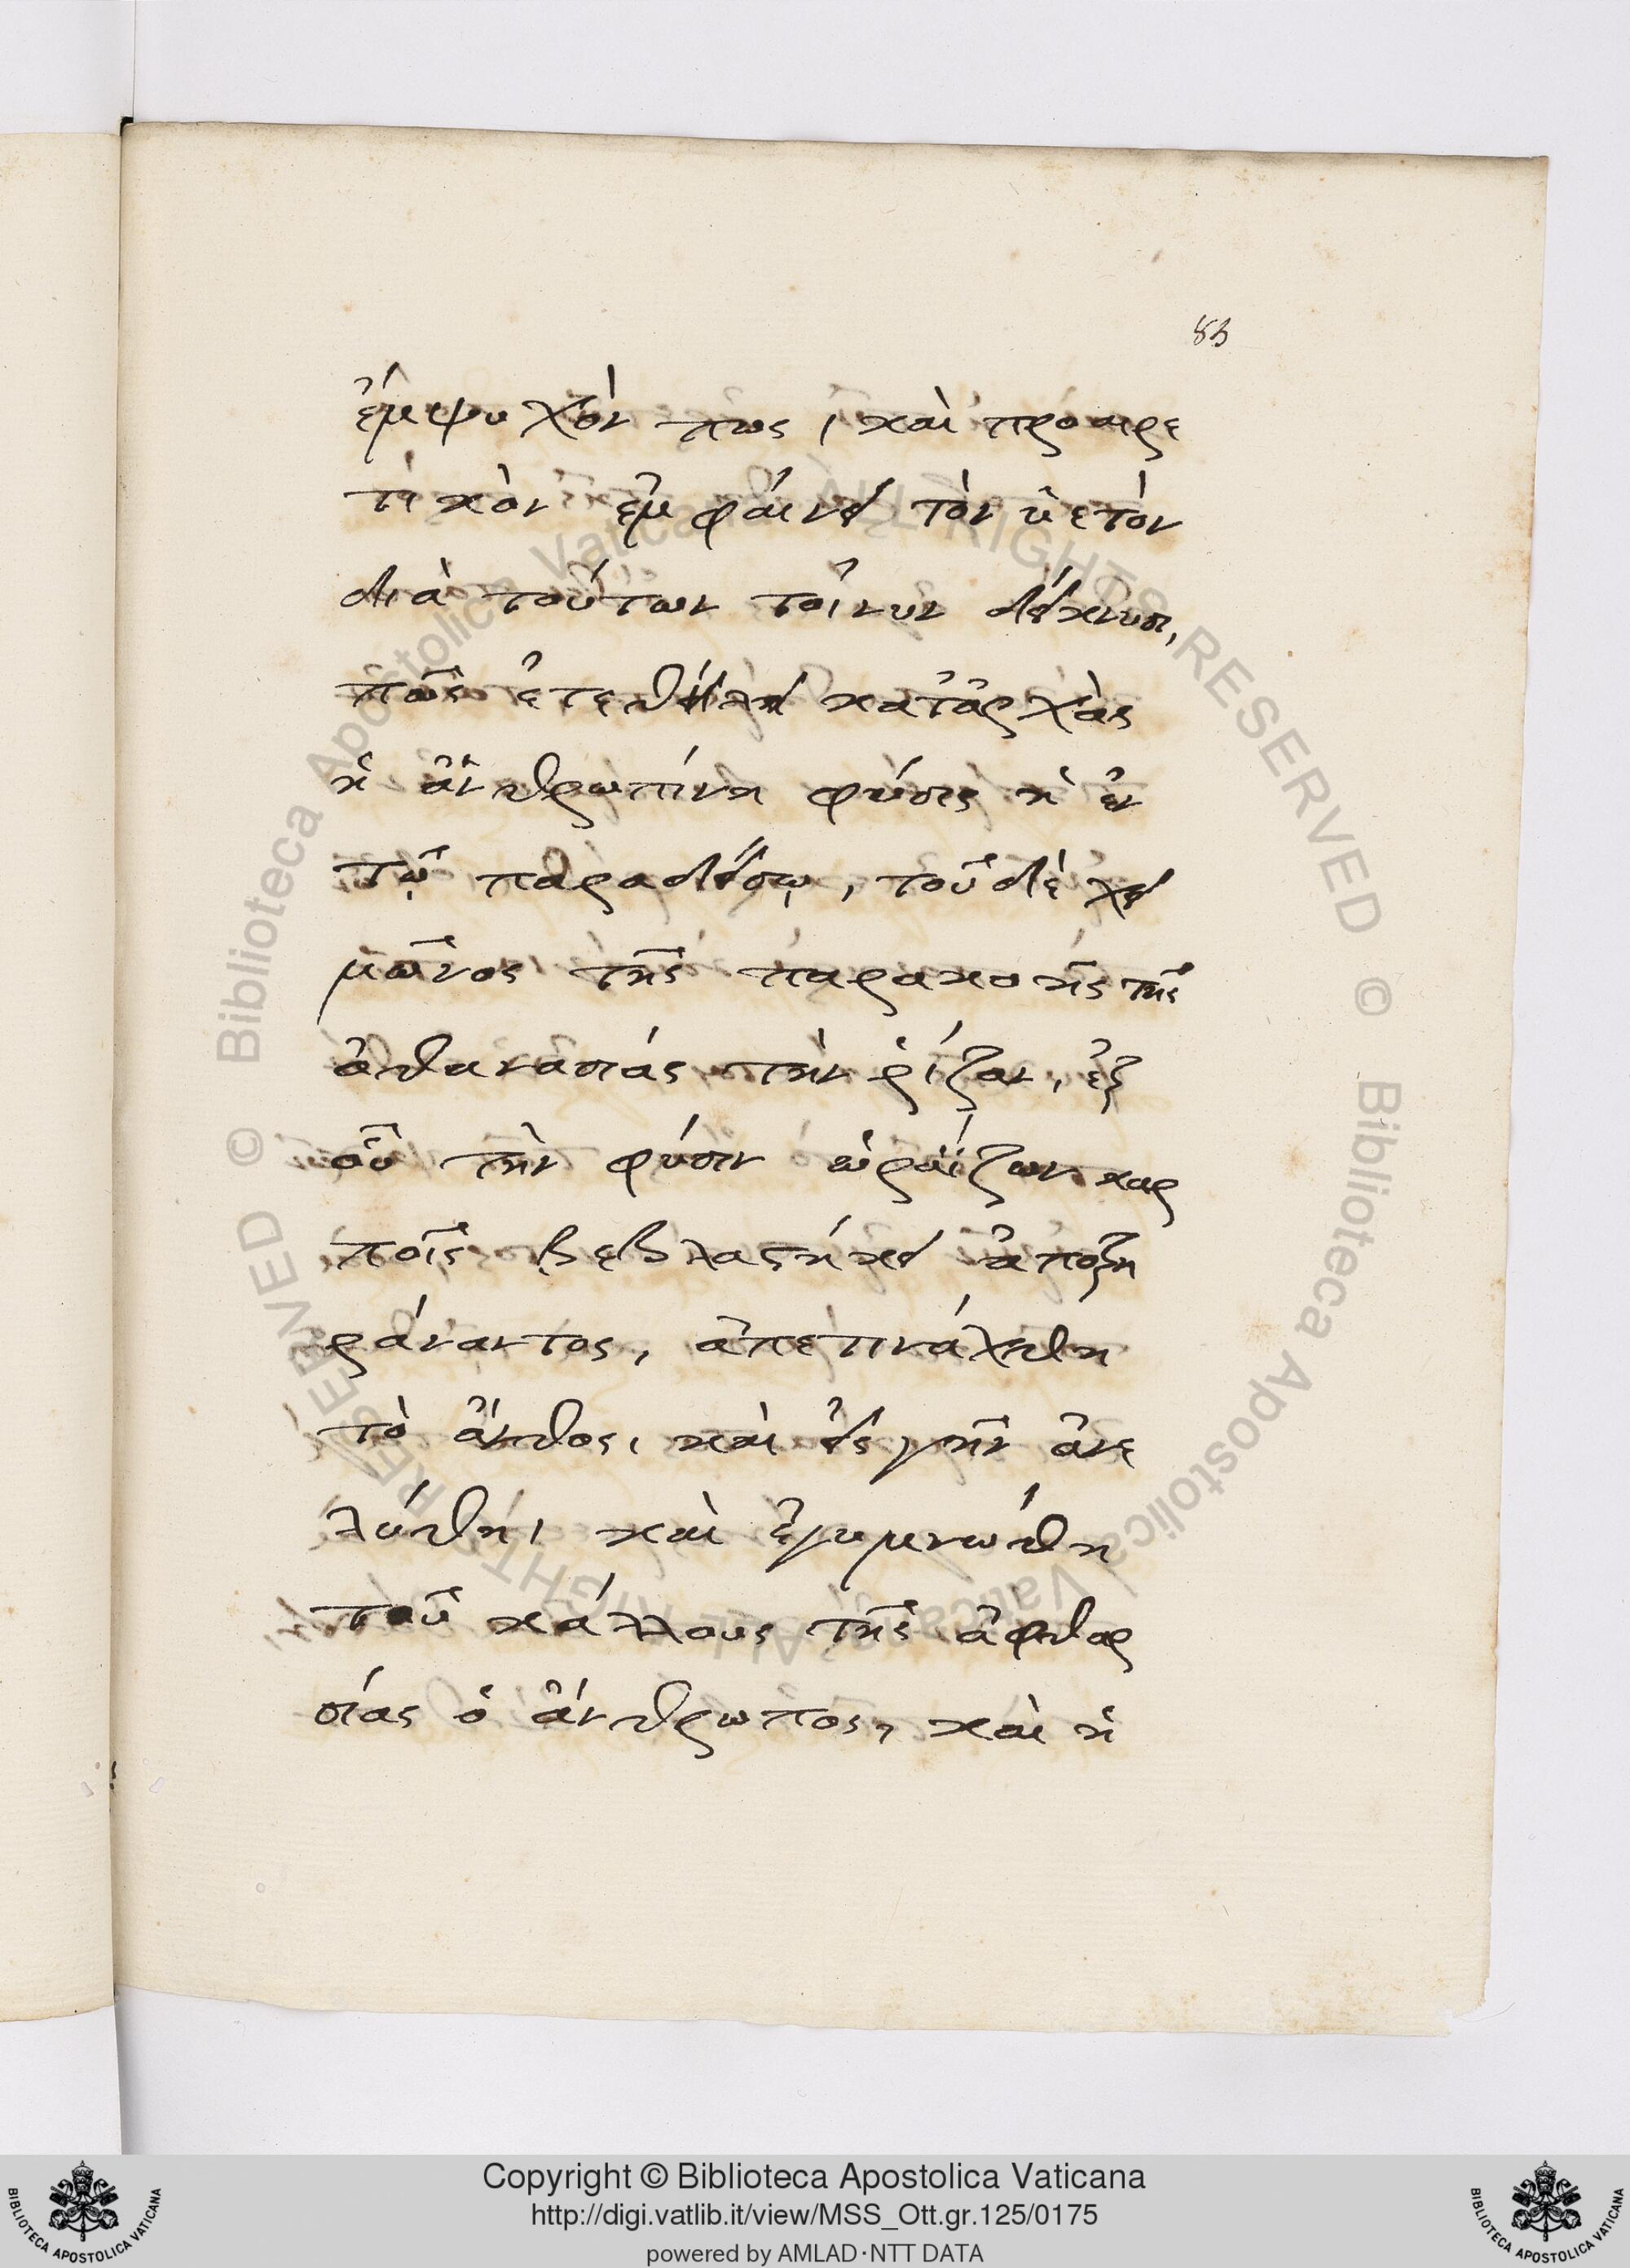 83
ἐμψυχόν πως, καὶ προαιρε
τικὸν ἐμφαίνει τὸν ὑετὸν
διὰ τούτων τοίνυν δείκνυσι,
πῶς ἐτεθήλει κατἀρχὰς
ἡ ἀνθρωπίνη φύσις ἡ ἐν
τῷ παραδείσῳ, τοῦ δὲ χει
μῶνος τῆς παρακοῆς τῆς
ἀθανασίας τὴν ῥίζαν, ἐξ
οὗ τὴν φύσιν ὡραΐζων καρ
ποῖς βεβλαστήκει ἀποξη
ράναντος, ἀπετινάχθη
τὸ ἄνθος, καὶ εἰς γῆν ἀνε
λύθη, καὶ ἐγυμνώθη
τοῦ κάλλους τῆς ἀφθαρ
σίας ὁ ἄνθρωπος, καὶ ἡ
© Biblioteca Apostolica Vaticana ALL RIGHTS RESERVED
© Biblioteca Apostolica Vaticana ALL RIGHTS RESERVED
Copyright © Biblioteca Apostolica Vaticana
http://digi.vatlib.it/view/MSS_Ott.gr.125/0175
powered by AMLAD·NTT DATA
BIBLIOTECA APOSTOLICA VATICANA
BIBLIOTECA APOSTOLICA VATICANA